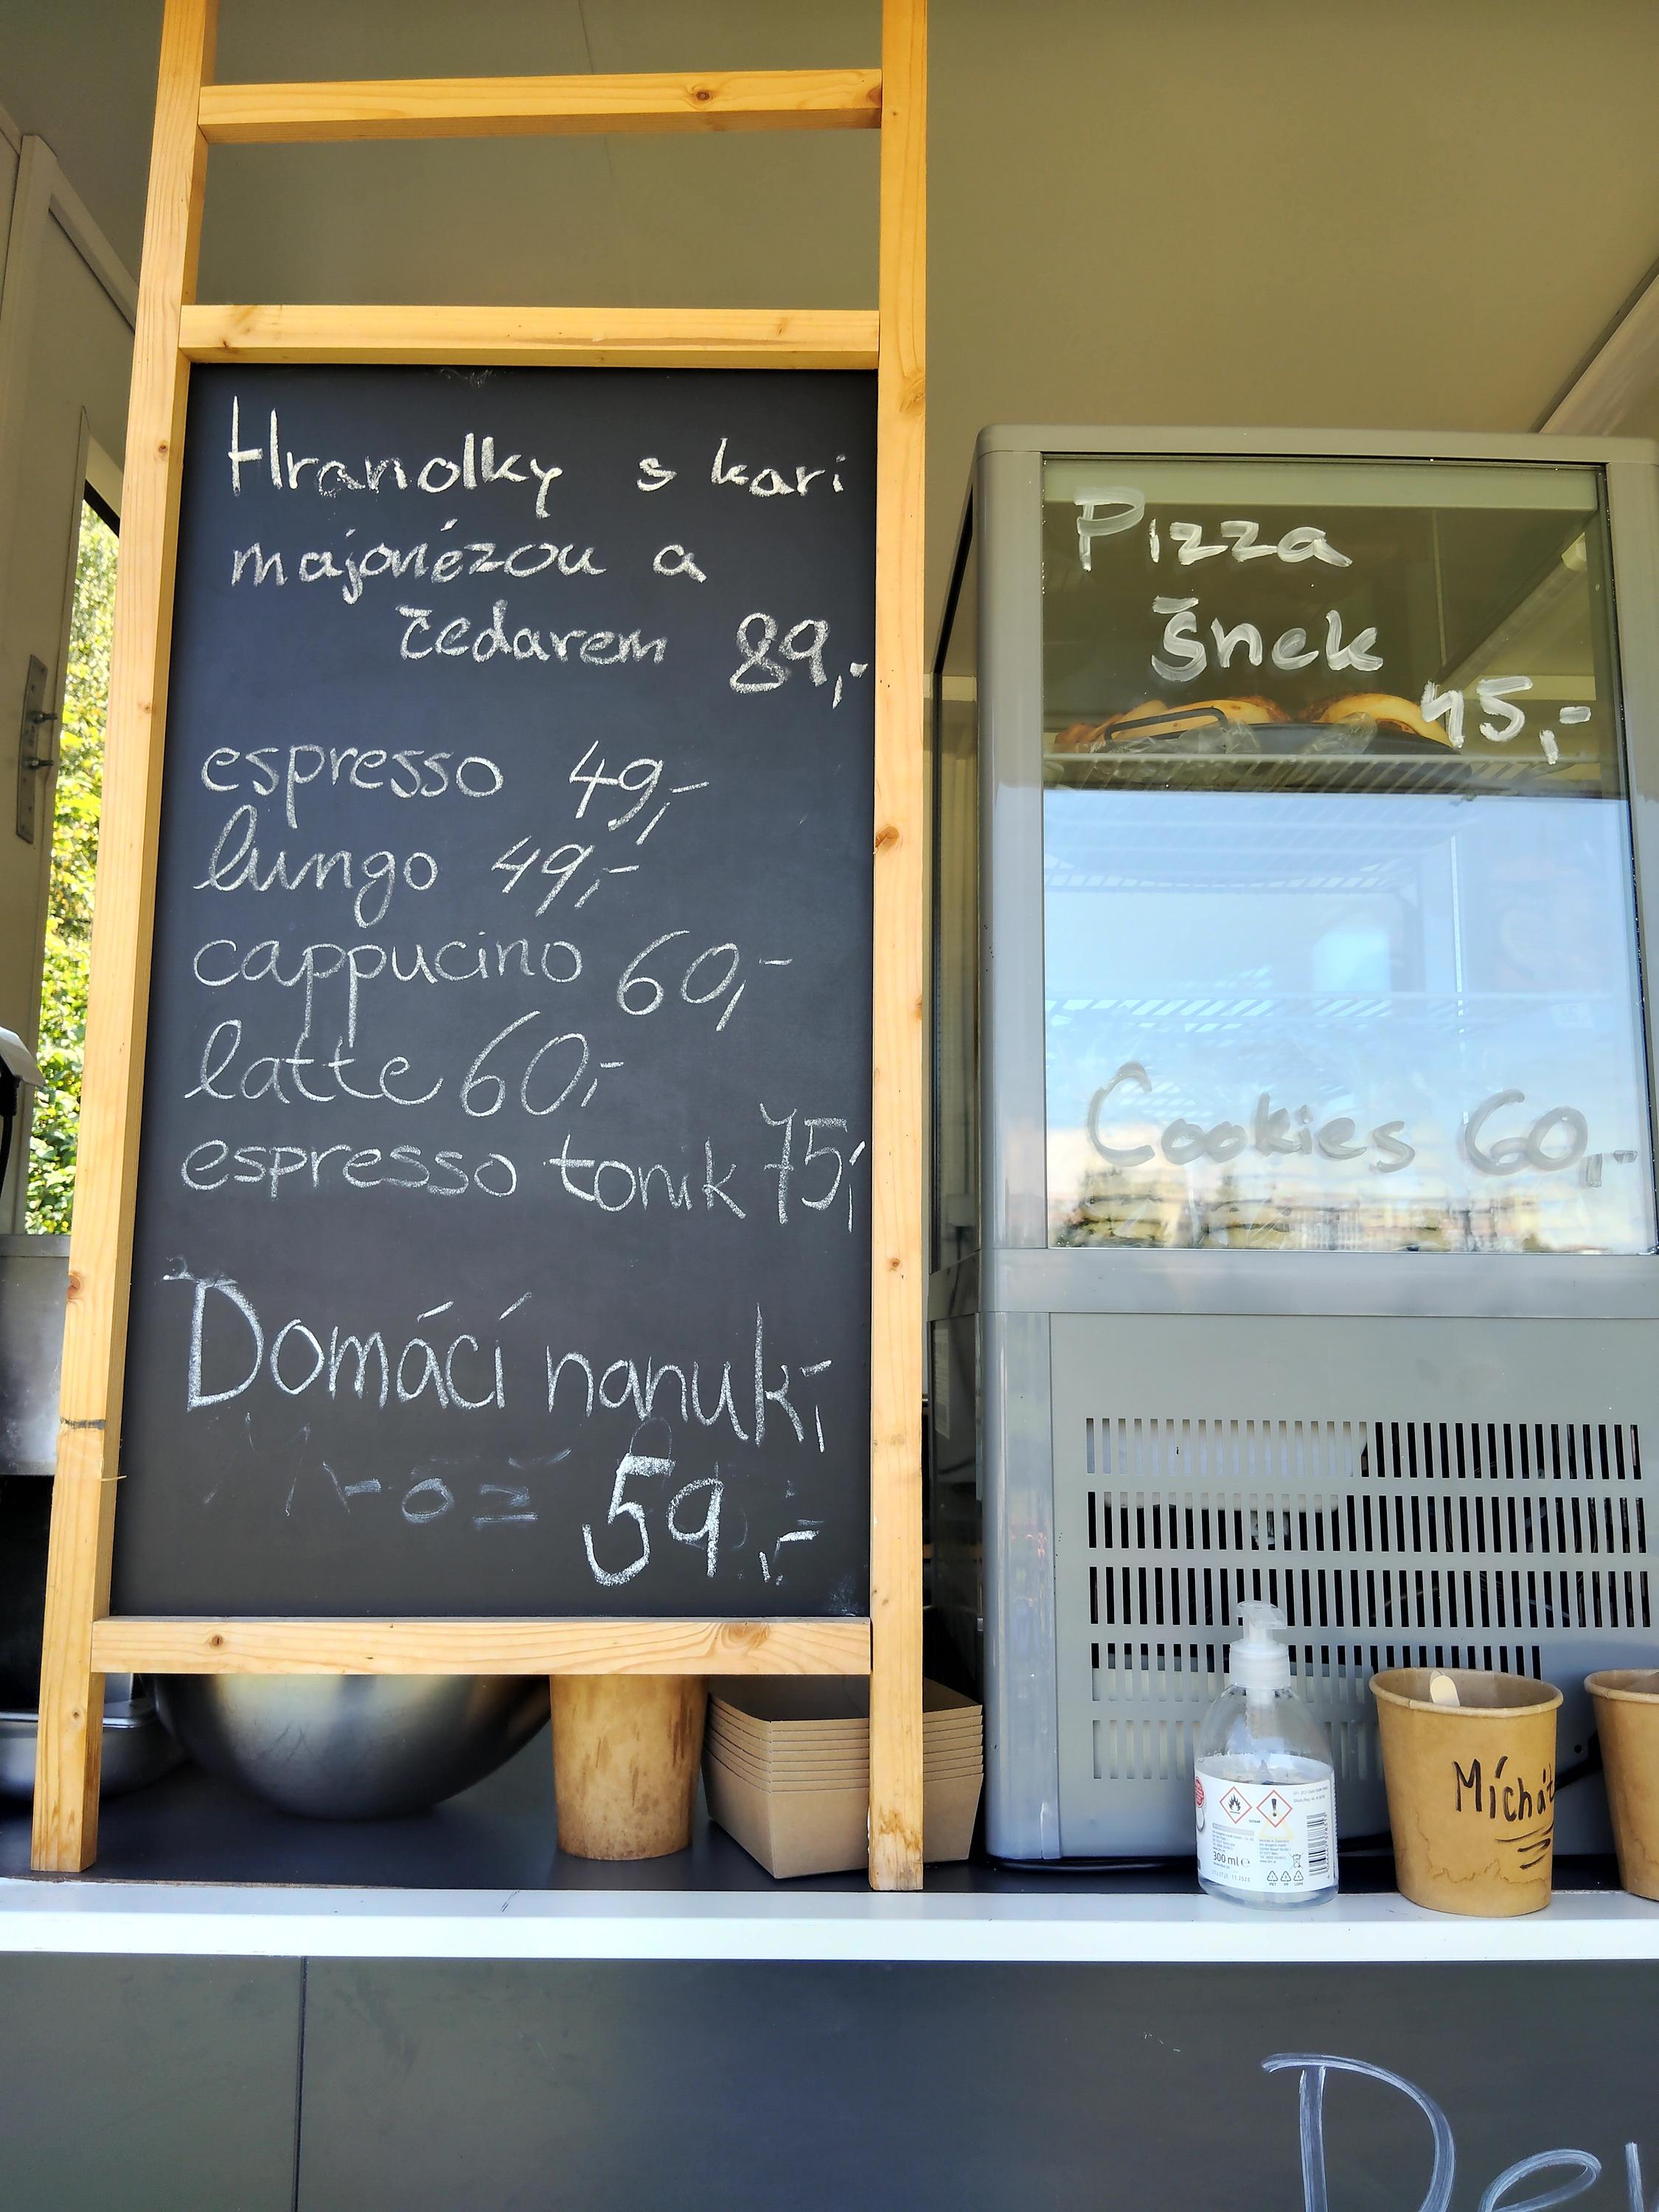 Hranolky s kari
majonézou a
čedarem 89,-
espresso 49,-
lungo 49,-
cappucino 60,-
latte 60,-
espresso tonik 75,-
Domácí nanuk
59,-
Pizza
šnek
45,-
Cookies 60,-
300 ml e
Míchát